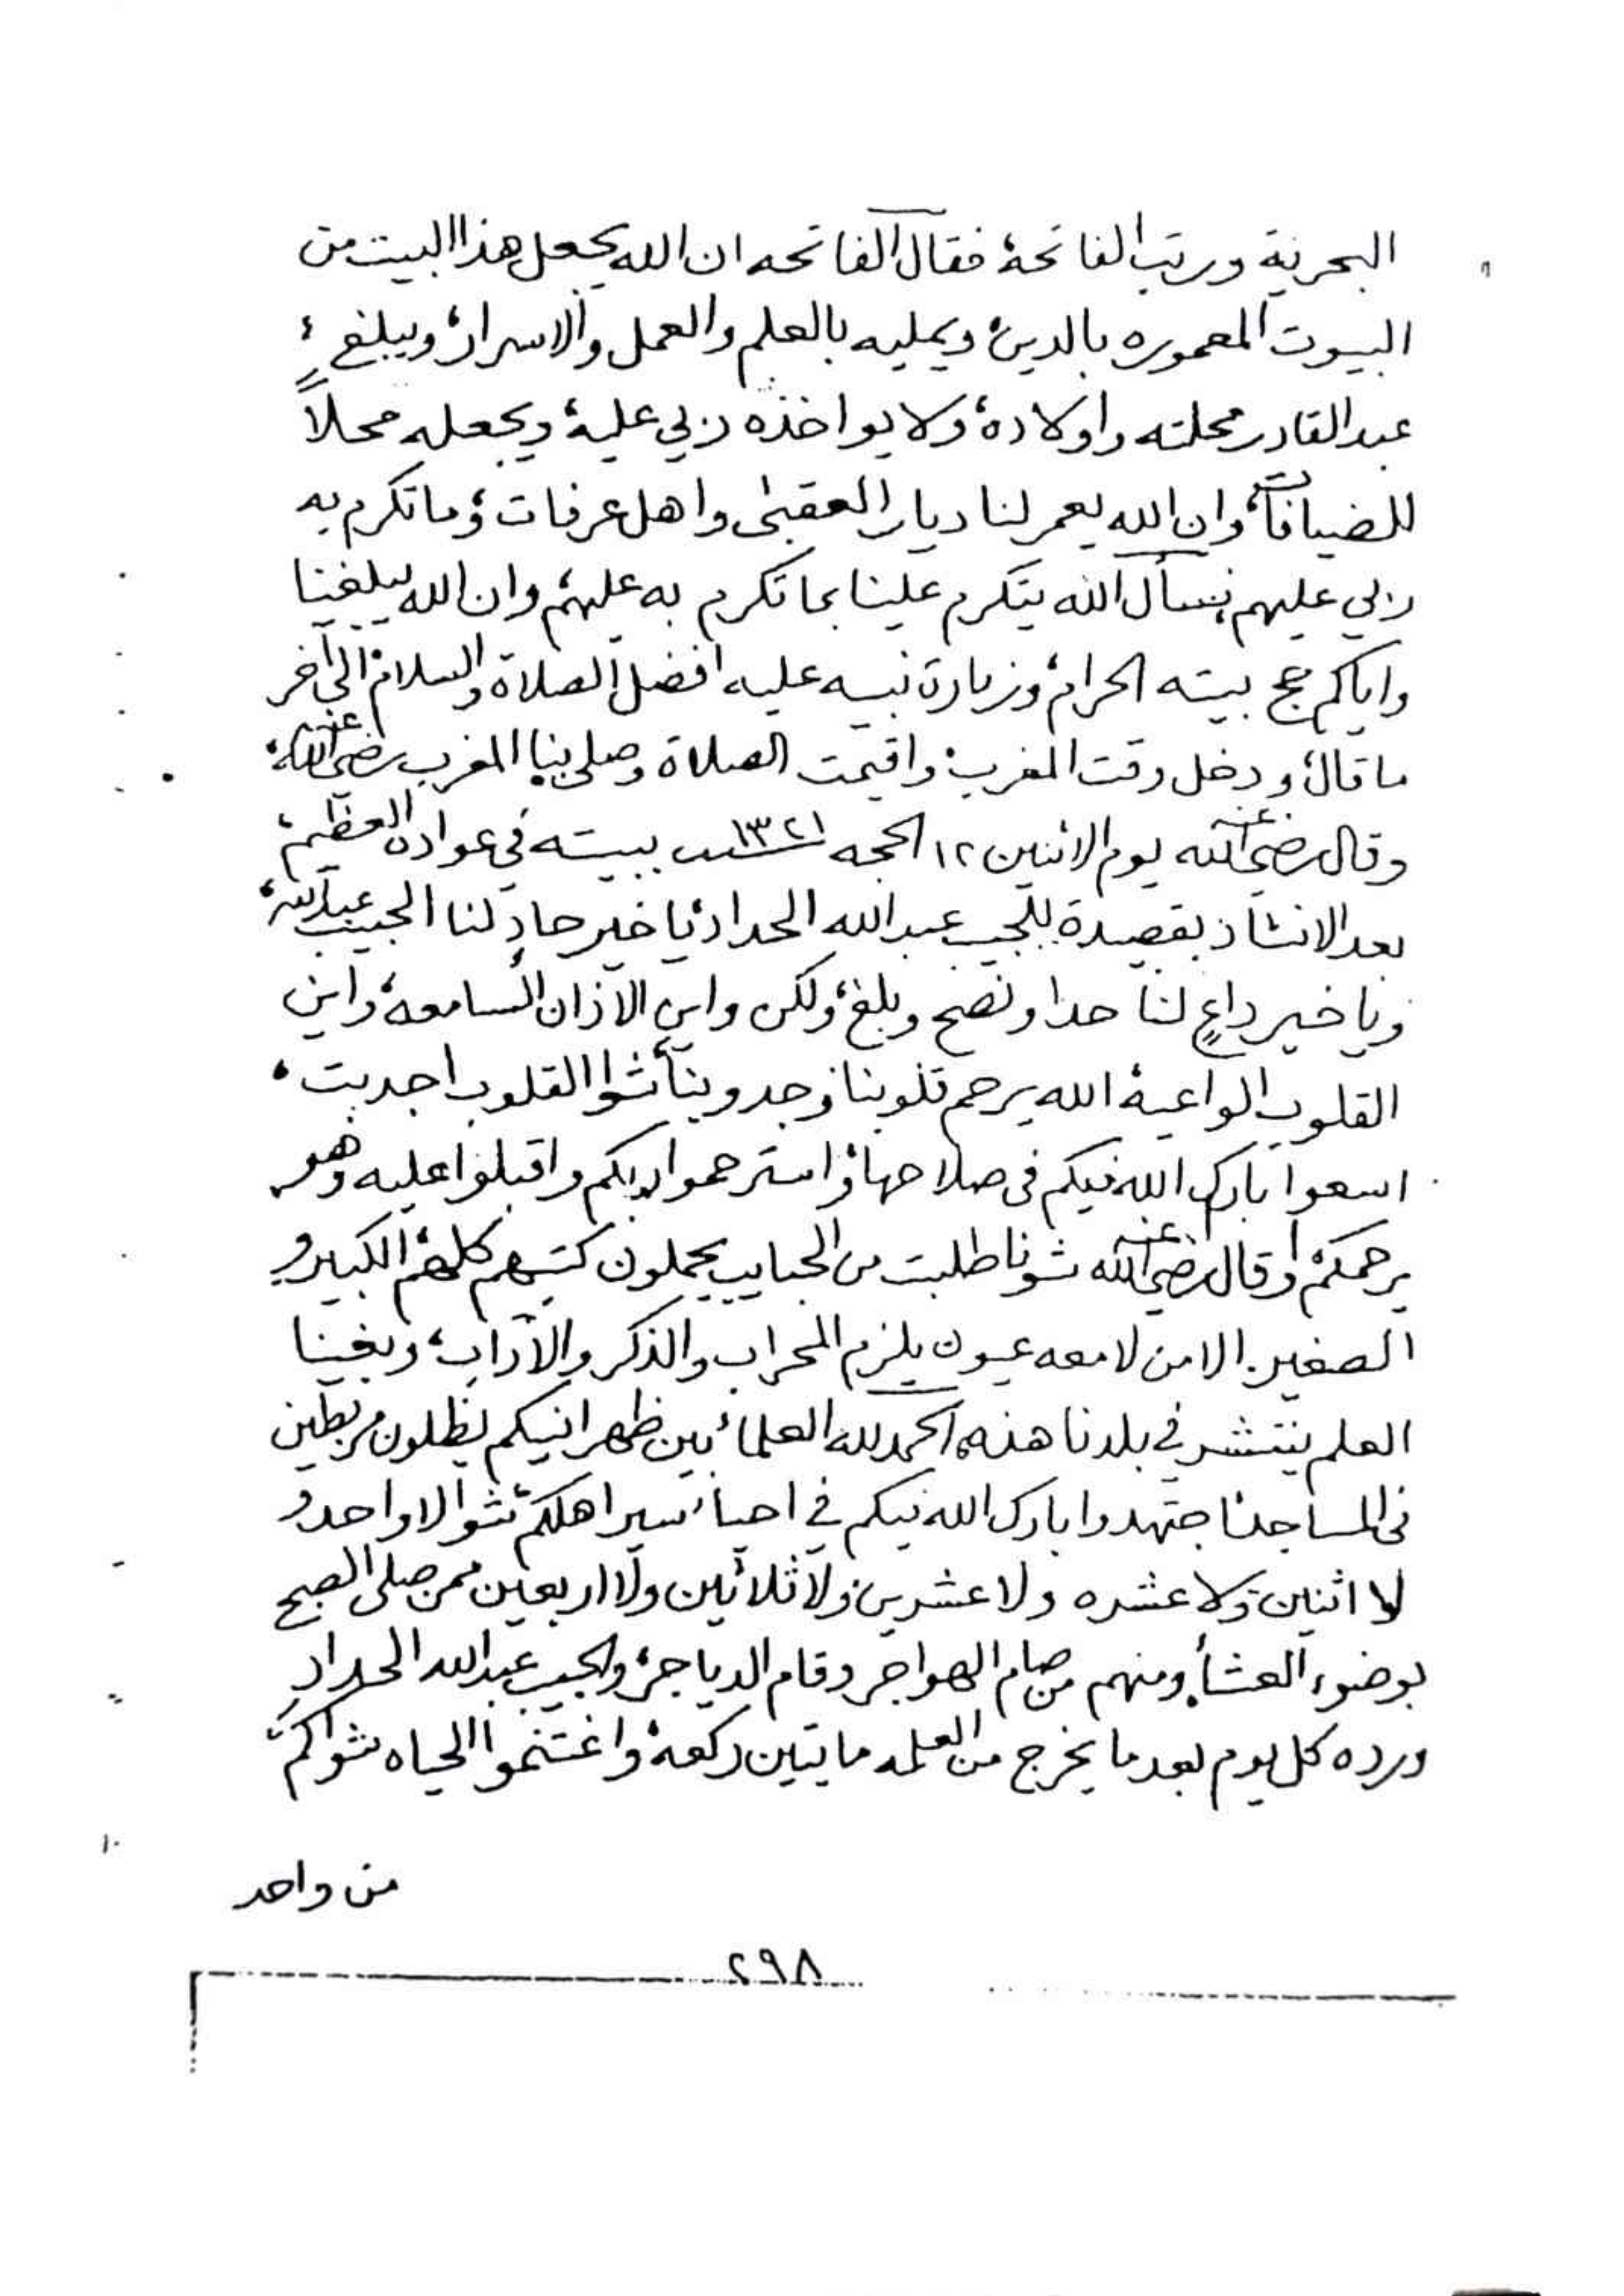 البحرية ورتب الفاتحة، فقال الفاتحه ان الله يجعل هذا البيت من
البيوت المعموره بالدين، ويمليه بالعلم والعمل والاسرار، ويبلغ،
عبد القادر محلته واولاده، ولا يواخذه ربي عليه، ويجعله محلاً
للضيافات، وان الله يعمر لنا ديار العقبى واهل عرفات، وما تكرم به
ربي عليهم، نسأل الله يتكرم علينا بما تكرم به عليهم، وان الله يبلغنا
واياكم حج بيته الحرام، وزيارة نبيه عليه افضل الصلاة والسلام، الى آخر
ما قال، ودخل وقت المغرب، واقيمت الصلاة وصلى بنا المغرب رضي الله عنه،
وقال رضي الله عنه يوم الاثنين ١٢ الحجه سنة ١٣٢١ ببيته في عواده العظيم،
بعد الانشاد بقصيدة للحبيب عبد الله الحداد، يا خير حادٍ لنا الحبيب عبد الله،
ويا خير داعٍ لنا حدا ونصح وبلغ، ولكن واين الاذان السامعة، واين
القلوب الواعية، الله يرحم قلوبنا، وجدوبنا، شوا القلوب اجدبت،
اسعوا بارك الله فيكم في صلاحها، واسترحموا ربكم واقبلوا عليه وهو
يرحمكم، وقال رضي الله عنه شونا طلبت من الحبايب يحملون كتبهم كلهم، الكبير و
الصغير. الا من لا معه عيون يلزم المحراب والذكر والآداب، وبغينا
العلم ينتشر في بلدنا هذه، الحمد لله العلماء بين ظهرانيكم يظلون مربطين
في المساجد، اجتهدوا بارك الله فيكم في احياء سير اهلكم، شوا لا واحد و
لا اثنين، ولا عشره ولا عشرين، ولا ثلاثين ولا اربعين ممن صلى الصبح
بوضوء العشاء، ومنهم من صام الهواجر وقام الدياجر، والحبيب عبد الله الحداد
ورده كل يوم بعد ما يخرج من العلمه مايتين ركعة، واغتنموا الحياه شوا كم
من واحد
٢٩٨